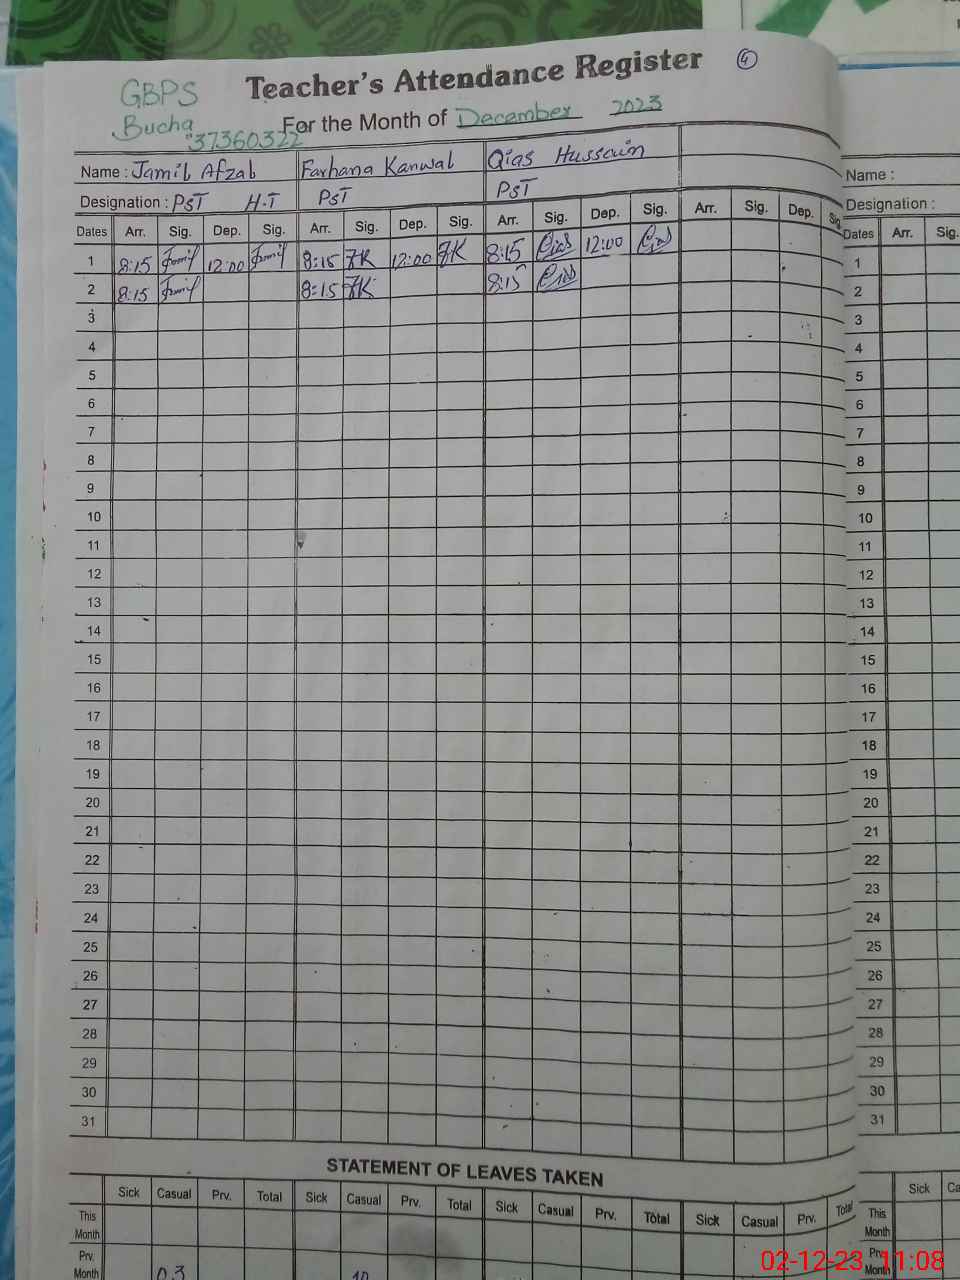 GBPS
Bucha
"37360322
Teacher's Attendance Register
4
For the Month of December 2023
Name : Jamil Afzal Farhana Kanwal Qias Hussain
Designation : PST H.T PST PST
Dates Arr. Sig. Dep. Sig. Arr. Sig. Dep. Sig. Arr. Sig. Dep. Sig. Arr. Sig. Dep. Sig
1 8:15 Jamil 12:00 Jamil 8:15 FK 12:00 FK 8:15 12:00
2 8:15 Jamil 8:15 FK 8:15
3
4
5
6
7
8
9
10
11
12
13
14
15
16
17
18
19
20
21
22
23
24
25
26
27
28
29
30
31
STATEMENT OF LEAVES TAKEN
Sick Casual Prv. Total Sick Casual Prv. Total Sick Casual Prv. Total Sick Casual Prv. Total
This Month
Prv. Month 03 10
Name :
Designation :
Dates Arr. Sig.
1
2
3
4
5
6
7
8
9
10
11
12
13
14
15
16
17
18
19
20
21
22
23
24
25
26
27
28
29
30
31
Sick Ca
This Month
Prv. Month
02-12-23 11:08